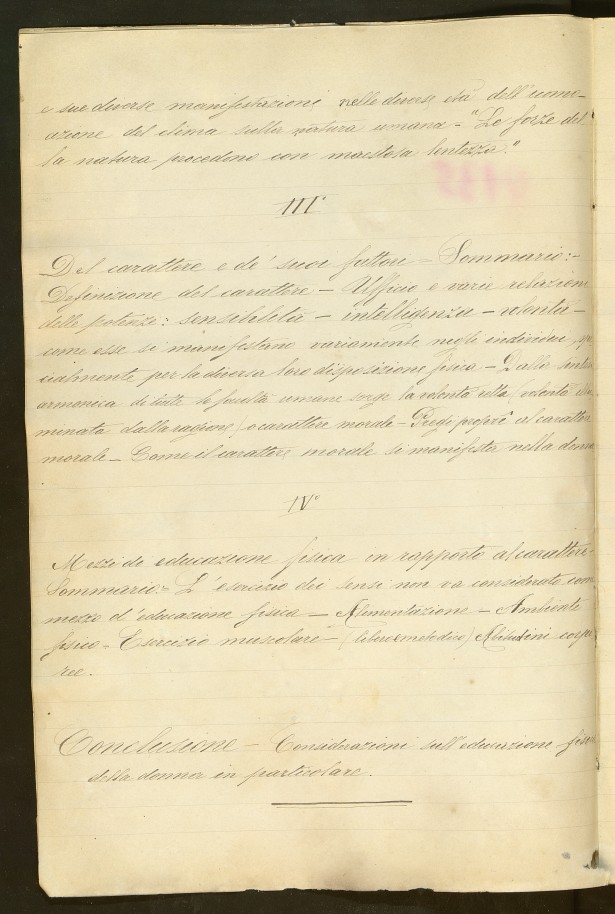 e sue diverse manifestazioni nelle diverse età dell'uomo -
azione del clima sulla natura umana - "Le forze del
la natura procedono con maestosa lentezza."
III°
Del carattere e de' suoi fattori - Sommario: -
Definizione del carattere - Ufficio e varie relazioni
delle potenze: sensibilità - intelligenza - volontà -
come esse si manifestano variamente negli individui, spe
cialmente per la diversa loro disposizione fisica - Dalla sintesi
armonica di tutte le facoltà umane sorge la volontà retta (volontà
minata dalla ragione) o carattere morale - Pregi proprî al carattere
morale - Come il carattere morale si manifesta nella donna
IV°
Mezzi di educazione fisica in rapporto al carattere -
Sommario: - L'esercizio dei sensi non va considerato come
mezzo d'educazione fisica - Alimentazione - Ambiente
fisico - Esercizio muscolare - (libero e metodico) Abitudini corpo
ree.
Conclusione - Considerazioni sull'educazione fisica
della donna in particolare.